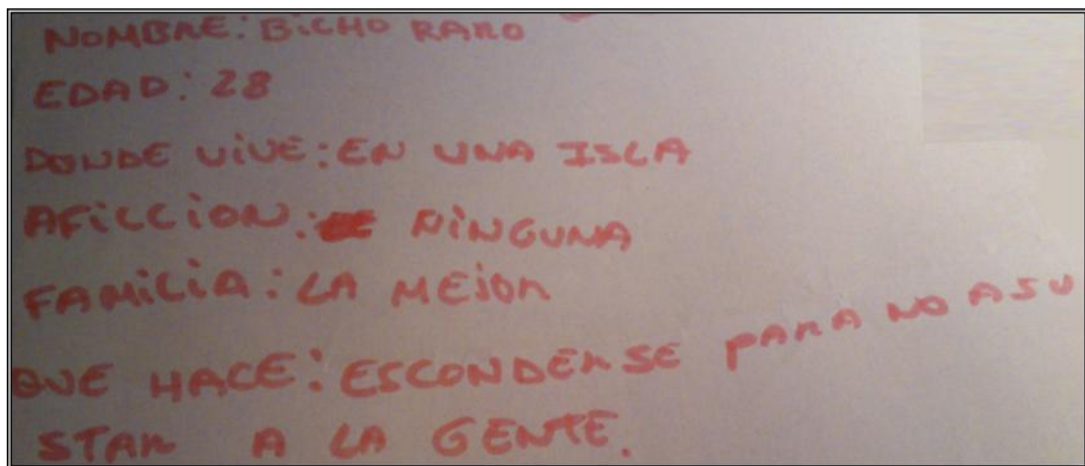 NOMBRE: BICHO RARO
EDAD: 28
DONDE VIVE: EN UNA ISLA
AFICCION: NINGUNA
FAMILIA: LA MEJOR
QUE HACE: ESCONDERSE PARA NO ASU
STAR A LA GENTE.